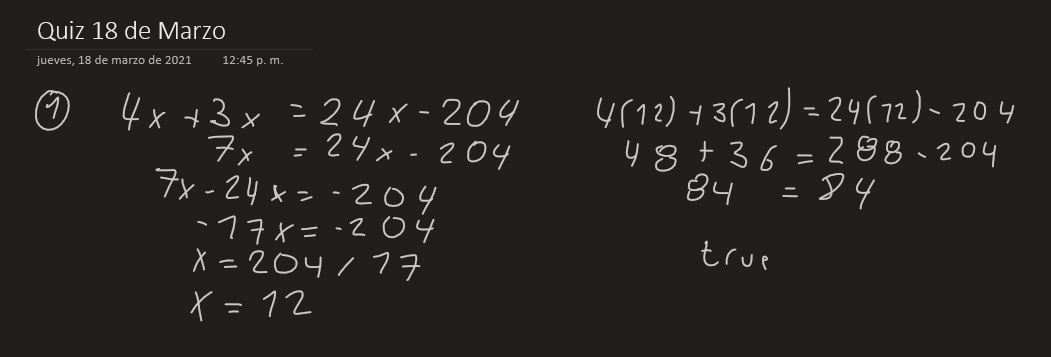 Quiz 18 de Marzo
jueves, 18 de marzo de 2021 12:45 p. m.
① 4x + 3x = 24x - 204
7x = 24x - 204
7x - 24x = - 204
- 17x = - 204
x = 204 / 17
x = 12
4(12) + 3(12) = 24(12) - 204
48 + 36 = 288 - 204
84 = 84
true